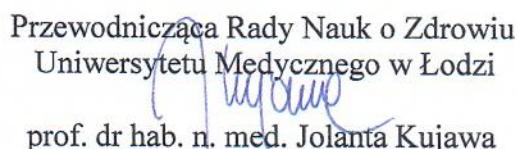 Przewodnicząca Rady Nauk o Zdrowiu
Uniwersytetu Medycznego w Łodzi
prof. dr hab. n. med. Jolanta Kujawa